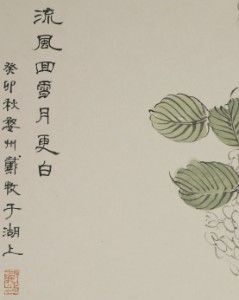 流風回雪月更白
癸卯秋婺州戴牧于湖上